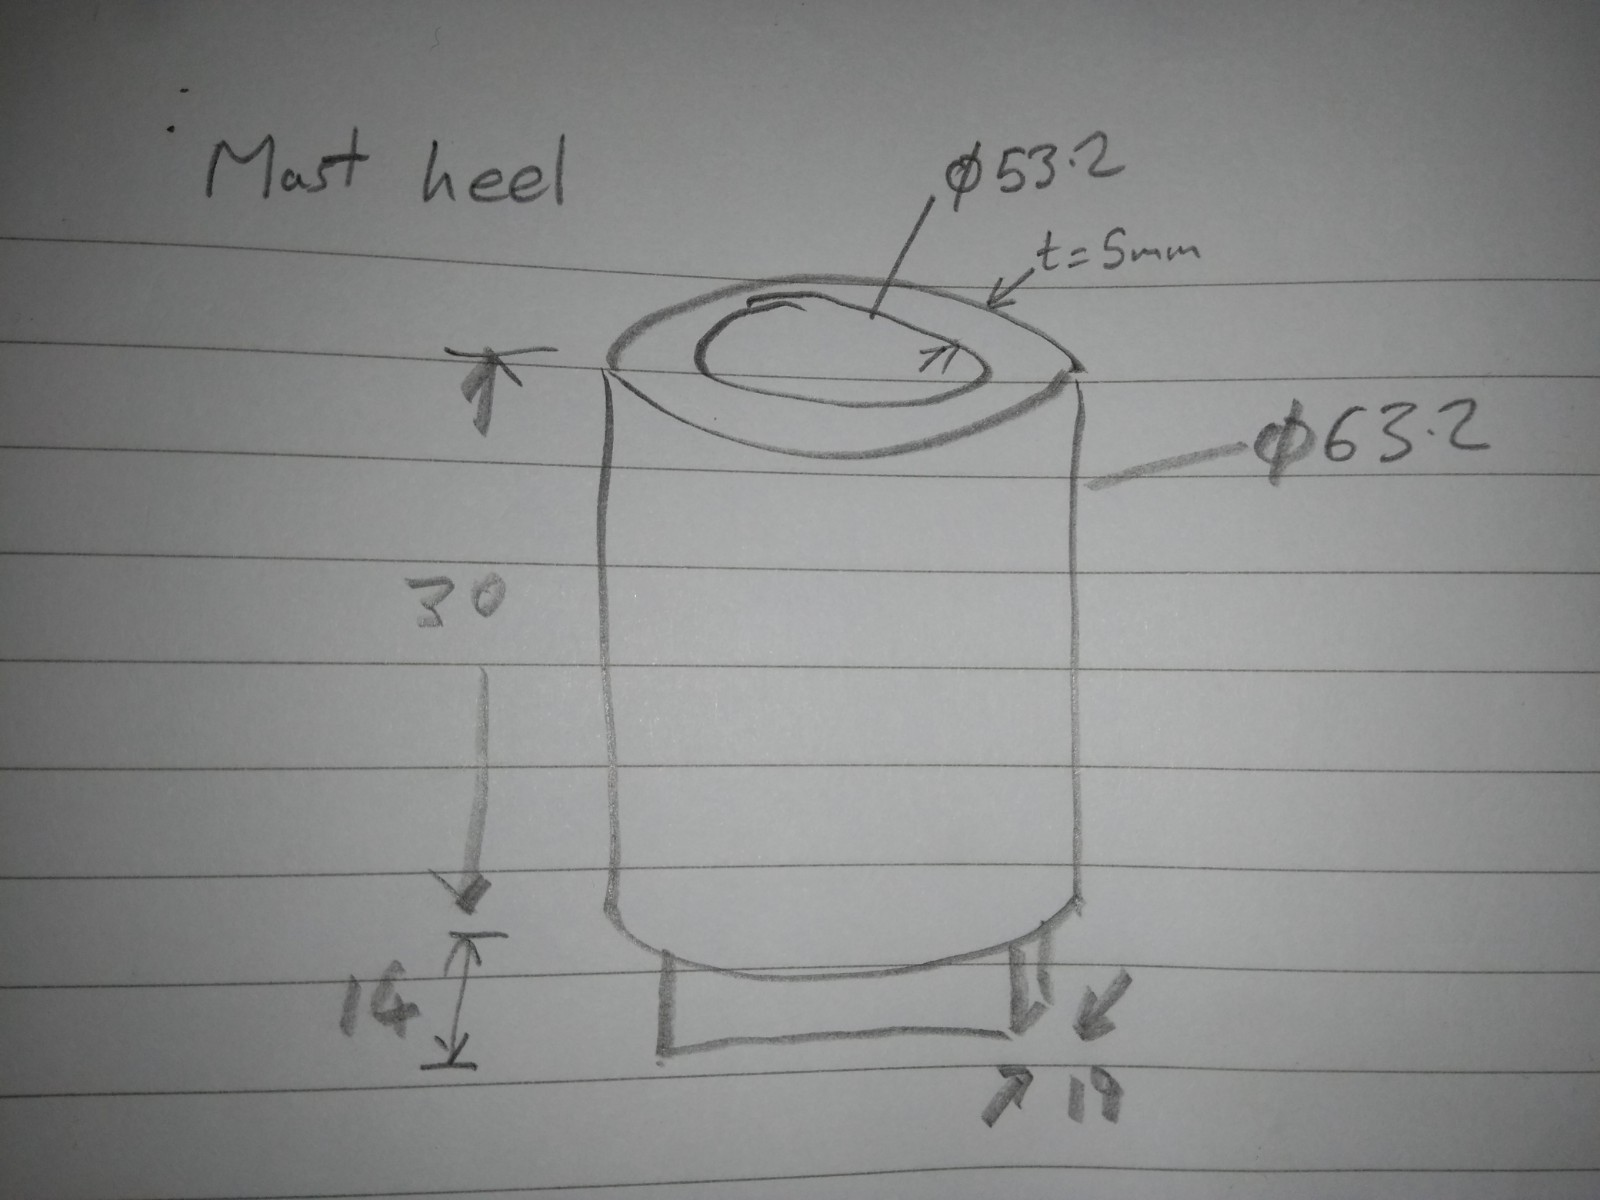 Mast heel
ϕ53.2
t=5mm
ϕ63.2
30
14
19